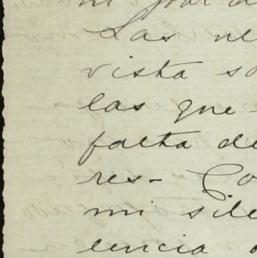 Las ne
vista so
las que
falta de
res- Co
mi sile
lencia